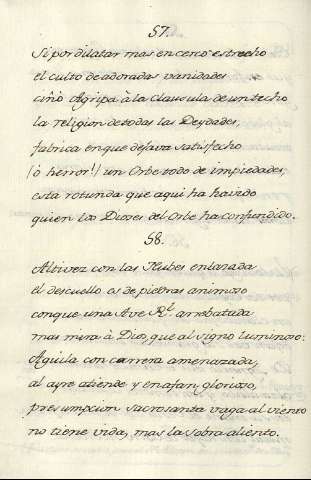 57.
Si por dilatar mas en cerco estrecho
el culto de adoradas vanidades
ciñò Agripa à la Clausula de un techo
la religion de todas las Deydades,
fabrica en que dejava satisfecho
(ò herror!) un Orbe todo de impiedades,
esta rotunda que aqui ha havido
quien los Dioses del Orbe ha confundido.
58.
Altivez con las Nubes enlazada
el descuello es de piedras animoso
con que una Ave Rl. arrebatada
mas mira à Dios, que al signo luminoso:
Aguila con carrera amenazada,
al ayre atiende y en afan glorioso,
presumpcion sacrosanta vaga al viento
no tiene vida, mas la sobra aliento.